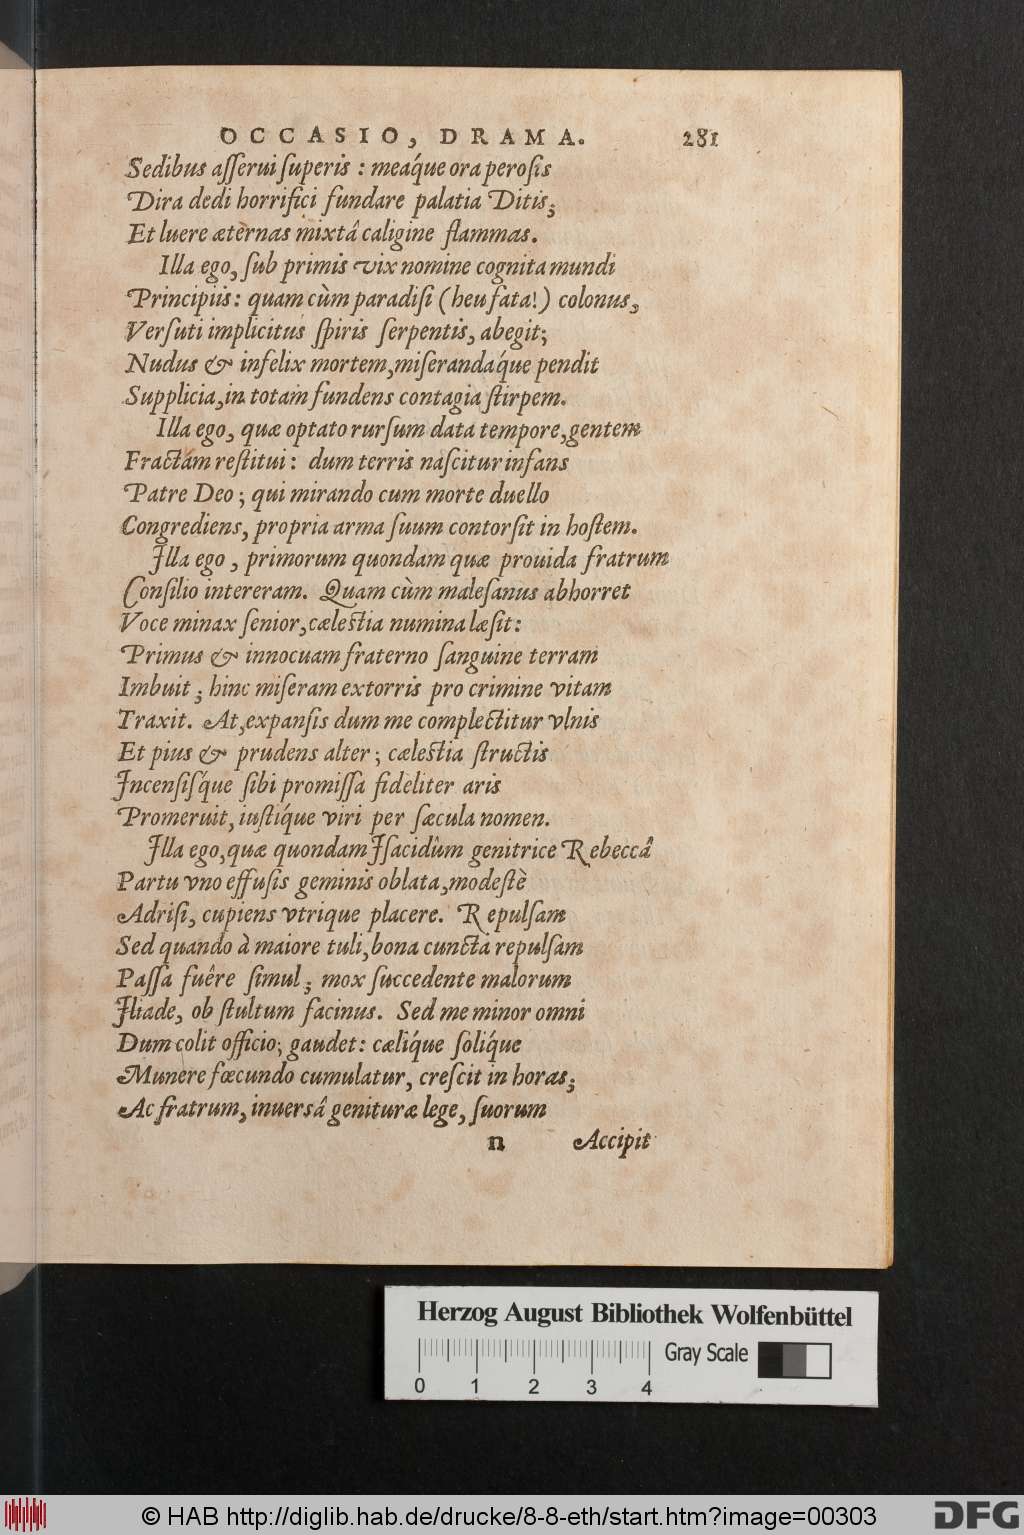 OCCASIO, DRAMA. 281
Sedibus asserui superis : meáque ora perosis
Dira dedi horrifici fundare palatia Ditis;
Et luere æternas mixtâ caligine flammas.
Illa ego, sub primis vix nomine cognita mundi
Principiis: quam cùm paradisi (heu fata!) colonus,
Versuti implicitus spiris serpentis, abegit;
Nudus & infelix mortem, miserandáque pendit
Supplicia, in totam fundens contagia stirpem.
Illa ego, quæ optato rursum data tempore, gentem
Fractam restitui: dum terris nascitur infans
Patre Deo; qui mirando cum morte duello
Congrediens, propria arma suum contorsit in hostem.
Illa ego, primorum quondam quæ prouida fratrum
Consilio intereram. Quam cùm malesanus abhorret
Voce minax senior, cælestia numina læsit:
Primus & innocuam fraterno sanguine terram
Imbuit; hinc miseram extorris pro crimine vitam
Traxit. At, expansis dum me complectitur vlnis
Et pius & prudens alter; cælestia structis
Incensisq́ue sibi promissa fideliter aris
Promeruit, iustíque viri per sæcula nomen.
Illa ego, quæ quondam Isacidûm genitrice Rebeccâ
Partu vno effusis geminis oblata, modestè
Adrisi, cupiens vtrique placere. Repulsam
Sed quando à maiore tuli, bona cuncta repulsam
Passa fuêre simul; mox succedente malorum
Iliade, ob stultum facinus. Sed me minor omni
Dum colit officio, gaudet: cælíque solíque
Munere fœcundo cumulatur, crescit in horas;
Ac fratrum, inuersâ genituræ lege, suorum
n Accipit
Herzog August Bibliothek Wolfenbüttel
Gray Scale
0 1 2 3 4
© HAB http://diglib.hab.de/drucke/8-8-eth/start.htm?image=00303
DFG